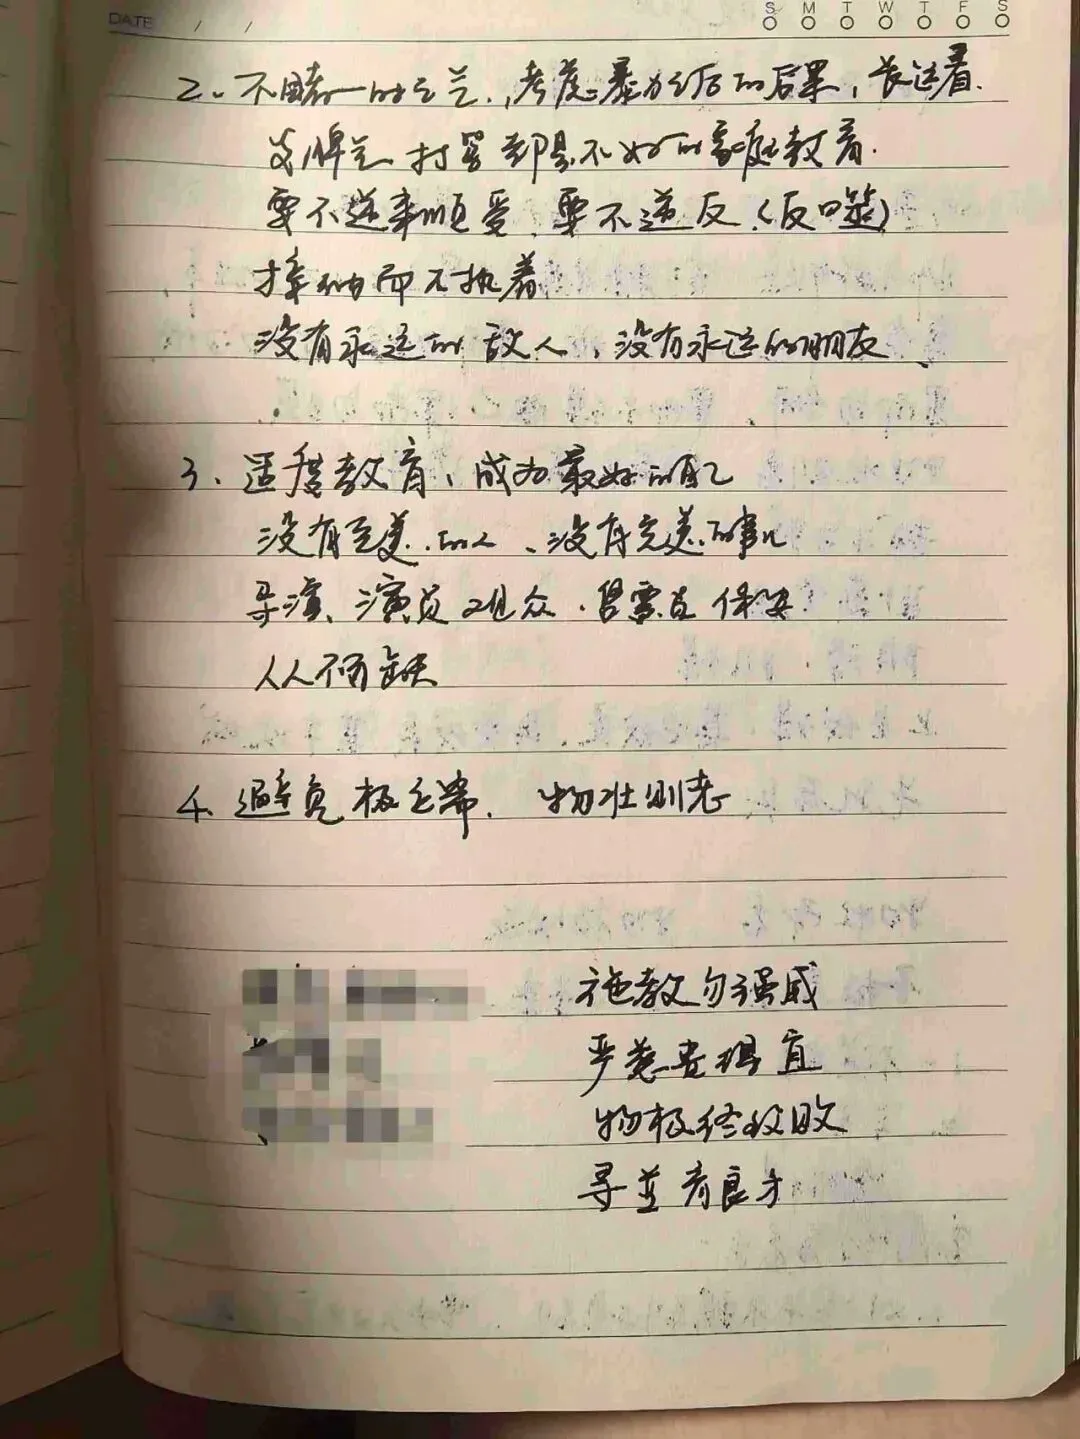 DATE / /
S M T W T F S
2、不赌一时之气、考虑暴力行后的后果，长远看.
打骂都是不好的家庭教育.
要不逆来顺受、要不逆反（反口噬）
接纳而不执着
没有永远的敌人、没有永远的朋友
3、适度教育、成为最好的自己
没有完美的人、没有完美的事儿
导演、演员 观众、 保安
人人不可缺
4、避免极之端、物壮则老
施教勿强威
严慈贵得宜
物极终致败
寻益育良才